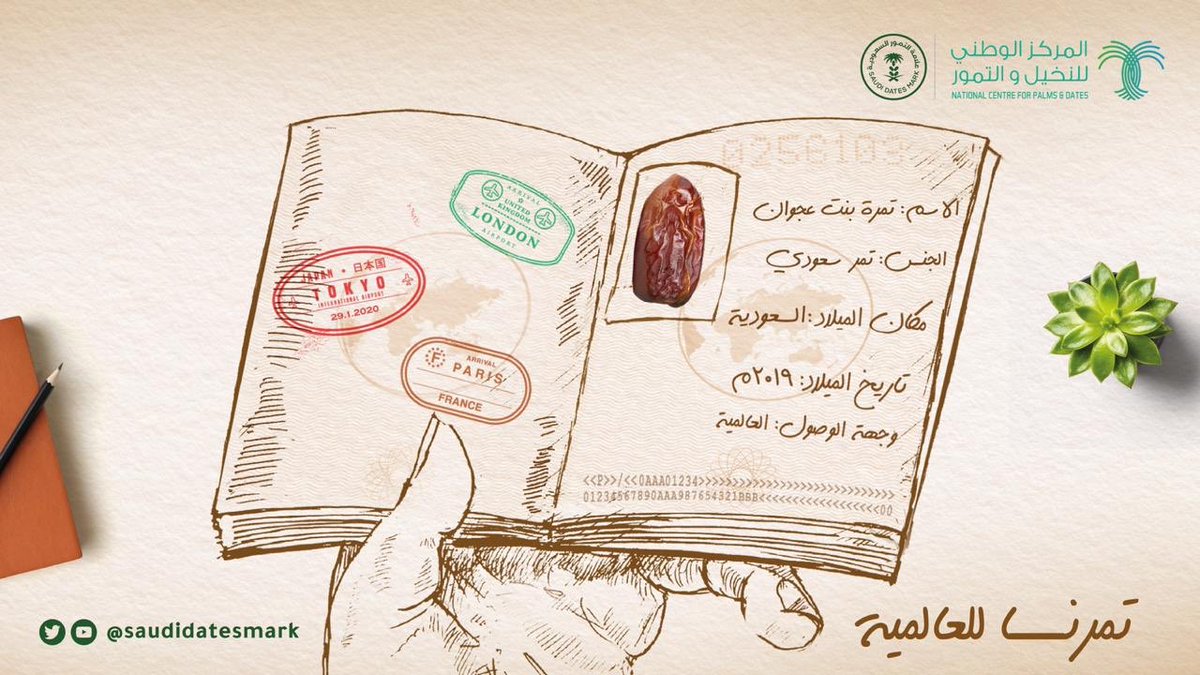 علامة التمور السعودية
SAUDI DATES MARK
المركز الوطني
للنخيل و التمور
NATIONAL CENTRE FOR PALMS & DATES
0256103
ARRIVAL
UNITED
KINGDOM
LONDON
AIRPORT
JAPAN • 日本国
TOKYO
INTERNATIONAL AIRPORT
29.1.2020
F
ARRIVAL
PARIS
FRANCE
الاسم: تمرة بنت عجوان
الجنس: تمر سعودي
مكان الميلاد: السعودية
تاريخ الميلاد: ٢٠١٩م
وجهة الوصول: العالمية
<<P>>/<<0AAA01234>>>>>>>>>>>>>>>>>>>>>>>>>>>>
01234567890AAA987654321BBB<<<<<<<<<<<<<<<<<<<00
@saudidatesmark
تمرنــا للعالمية